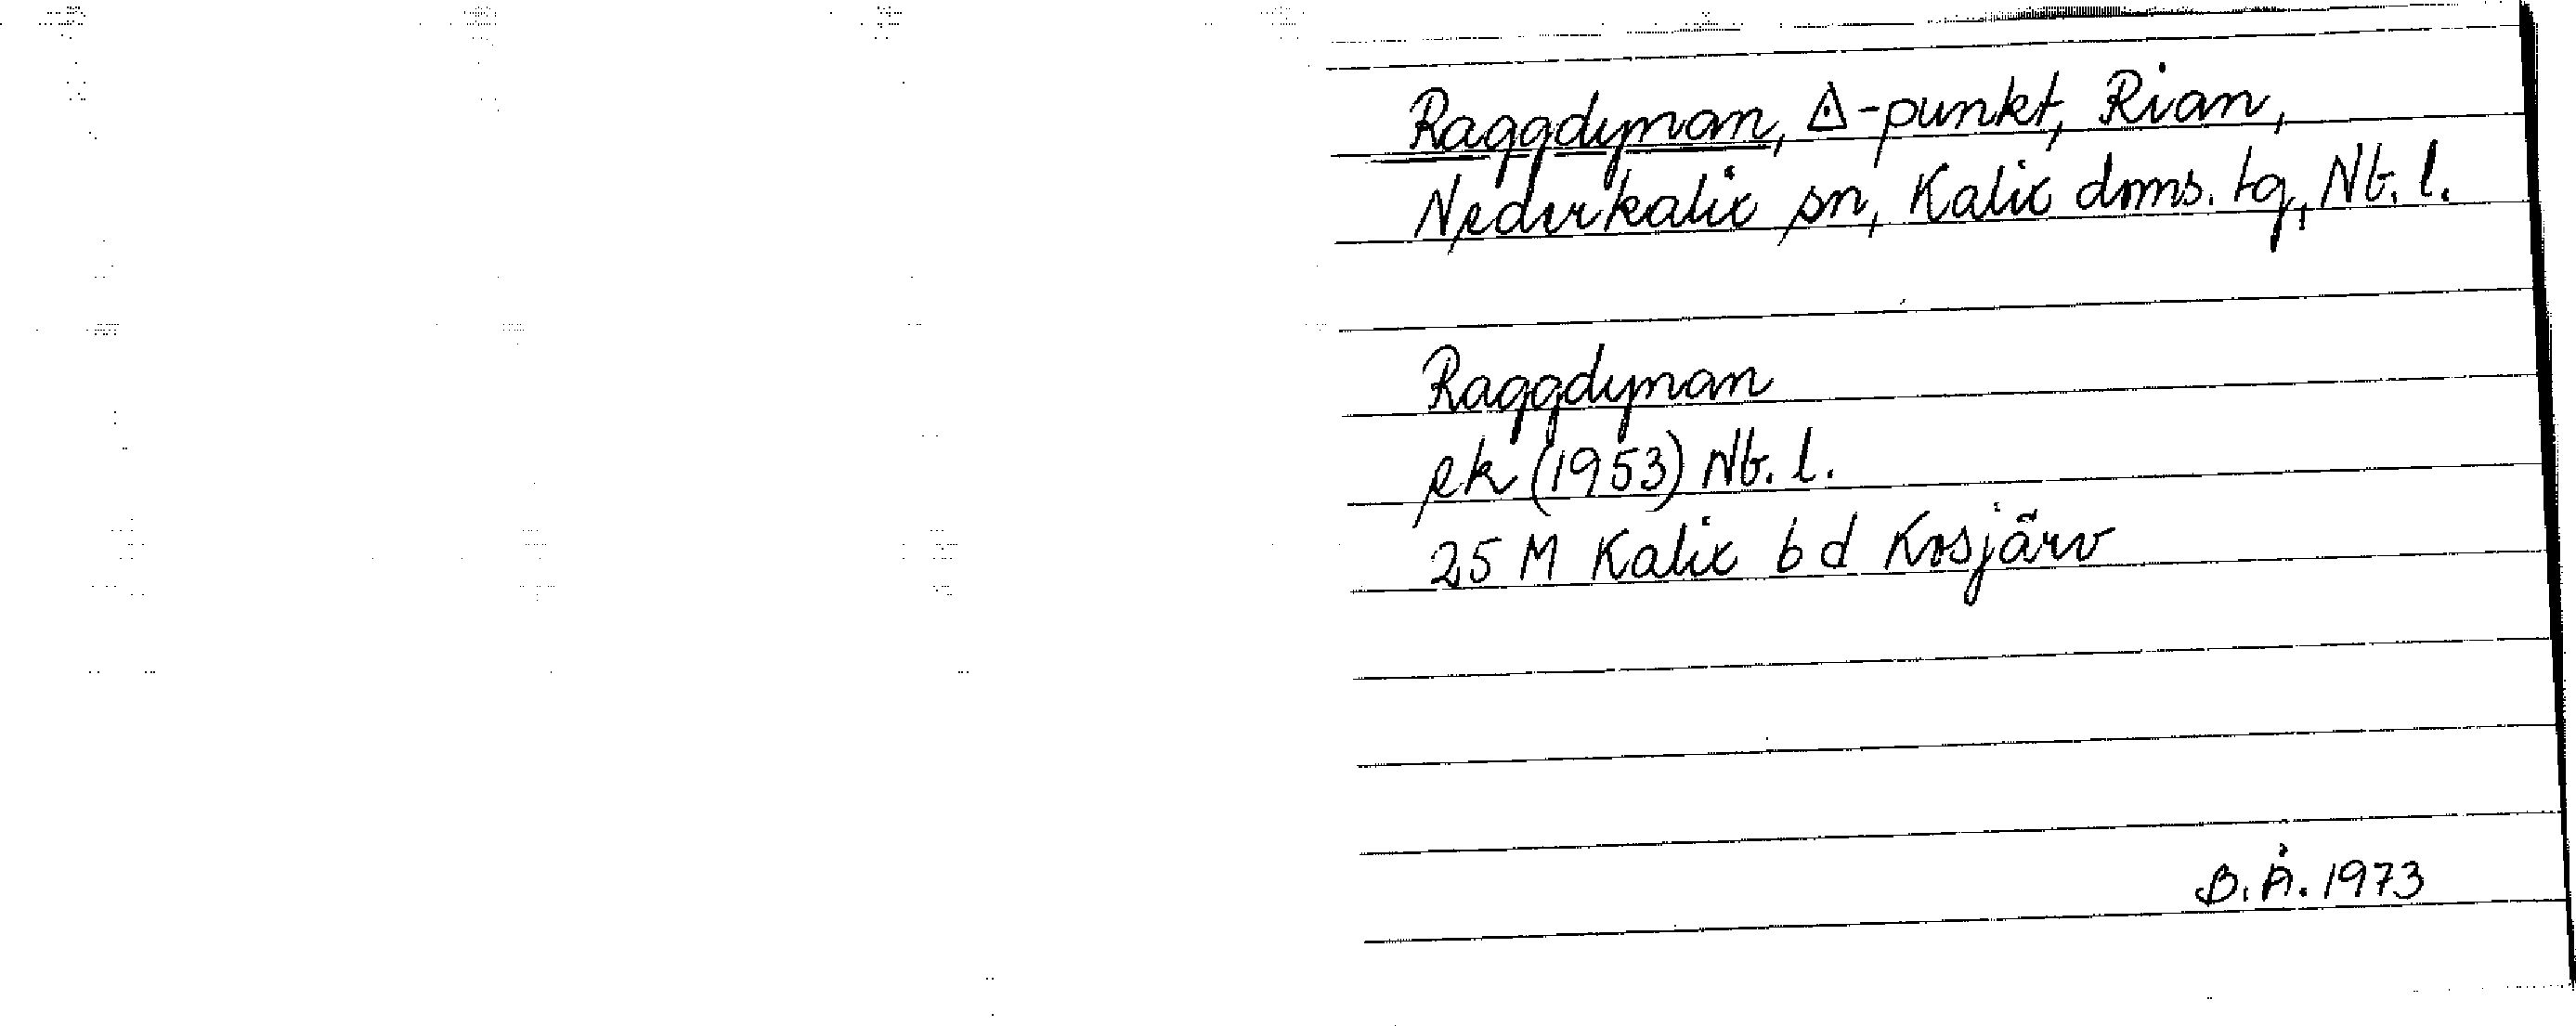 Raggdynan, ◬-punkt, Rian,
Nederkalix sn, Kalix doms. tg, Nb. l.
Raggdynan
ek (1953) Nb. l.
25 M Kalix b d Korsjärv
B.Å. 1973